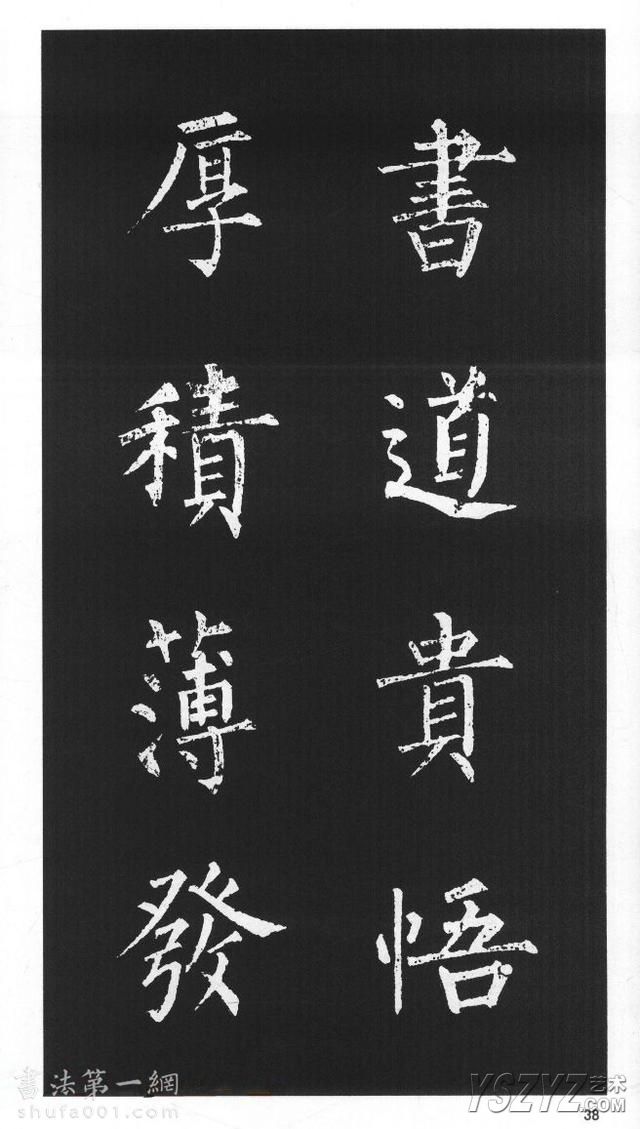 書道貴悟
厚積薄發
書法第一網
shufa001.com
YSZYZ艺术
.COM
38